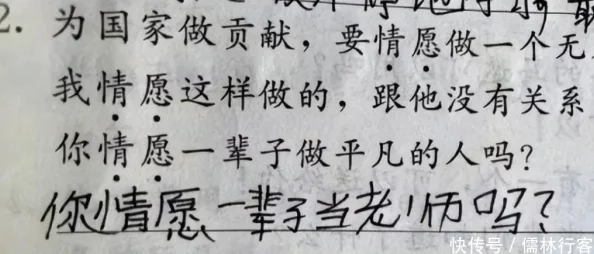 2. 为国家做贡献，要情愿做一个无
我情愿这样做的，跟他没有关系
你情愿一辈子做平凡的人吗？
你情愿一辈子当老师吗？
快传号／儒林行客